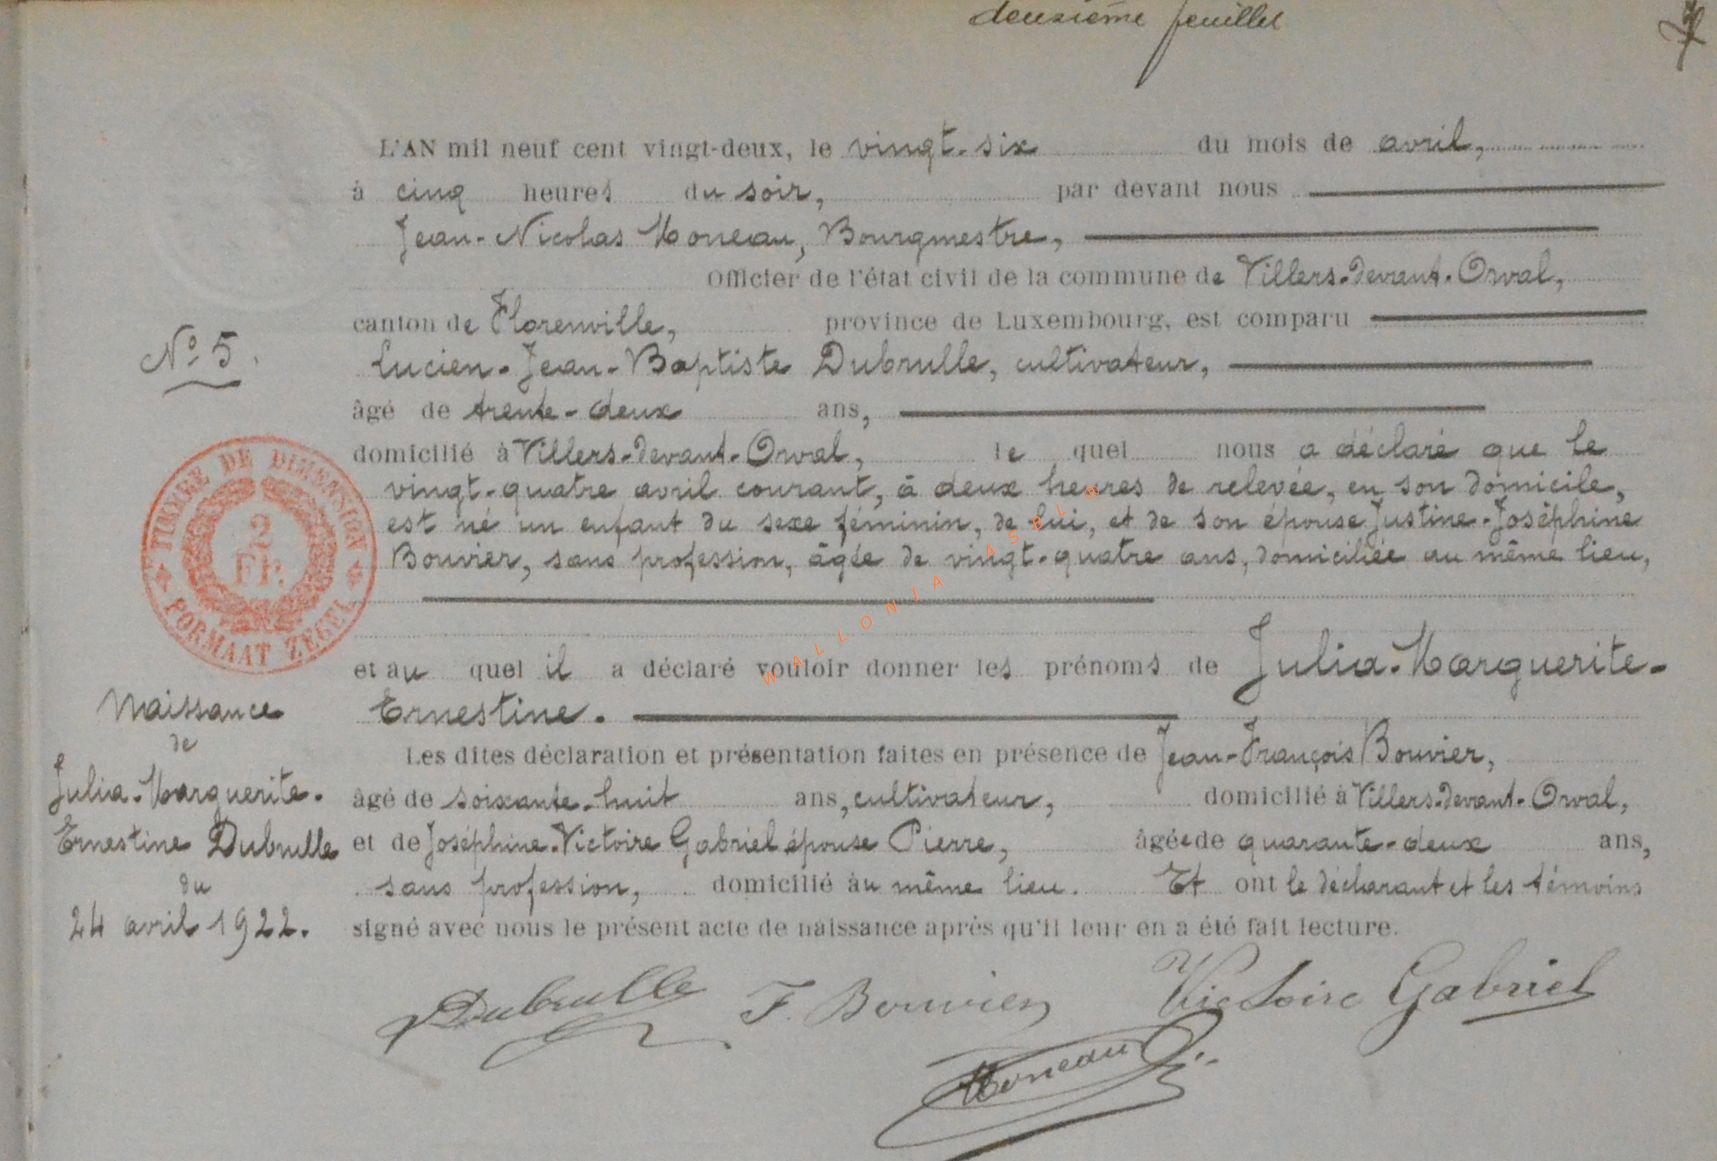 deuxième feuillet
L'AN mil neuf cent vingt-deux, le vingt-six du mois de avril,
à cinq heures du soir, par devant nous
Jean-Nicolas Moneau, Bourgmestre,
Officier de l'état civil de la commune de Villers-devant-Orval,
canton de Florenville, province de Luxembourg, est comparu
Lucien-Jean-Baptiste Dubrulle, cultivateur,
âgé de trente-deux ans,
domicilié à Villers-devant-Orval, le quel nous a déclaré que le
vingt-quatre avril courant, à deux heures de relevée, en son domicile,
est né un enfant du sexe féminin, de lui, et de son épouse Justine-Joséphine
Bouvier, sans profession, âgée de vingt-quatre ans, domiciliée au même lieu,
et au quel il a déclaré vouloir donner les prénoms de Julia-Marguerite-
Ernestine.
Les dites déclaration et présentation faites en présence de Jean-François Bouvier,
âgé de soixante-huit ans, cultivateur, domicilié à Villers-devant-Orval,
et de Joséphine-Victoire Gabriel épouse Pierre, âgée de quarante-deux ans,
sans profession, domicilié au même lieu. Et ont le déclarant et les témoins
signé avec nous le présent acte de naissance après qu'il leur en a été fait lecture.
Dubrulle F. Bouvier Victoire Gabriel
Moneau
N° 5.
TIMBRE DE DIMENSION
2
FR.
FORMAAT ZEGEL
Naissance
de
Julia-Marguerite-
Ernestine Dubrulle
du
24 avril 1922.
WALLONIA ASBL